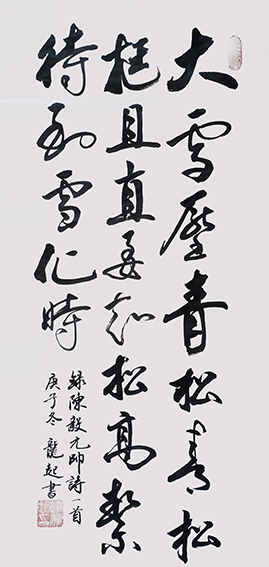 大雪壓青松青松
挺且直要知松高絜
待到雪化時
録陳毅元帥詩一首
庚子冬龍起書